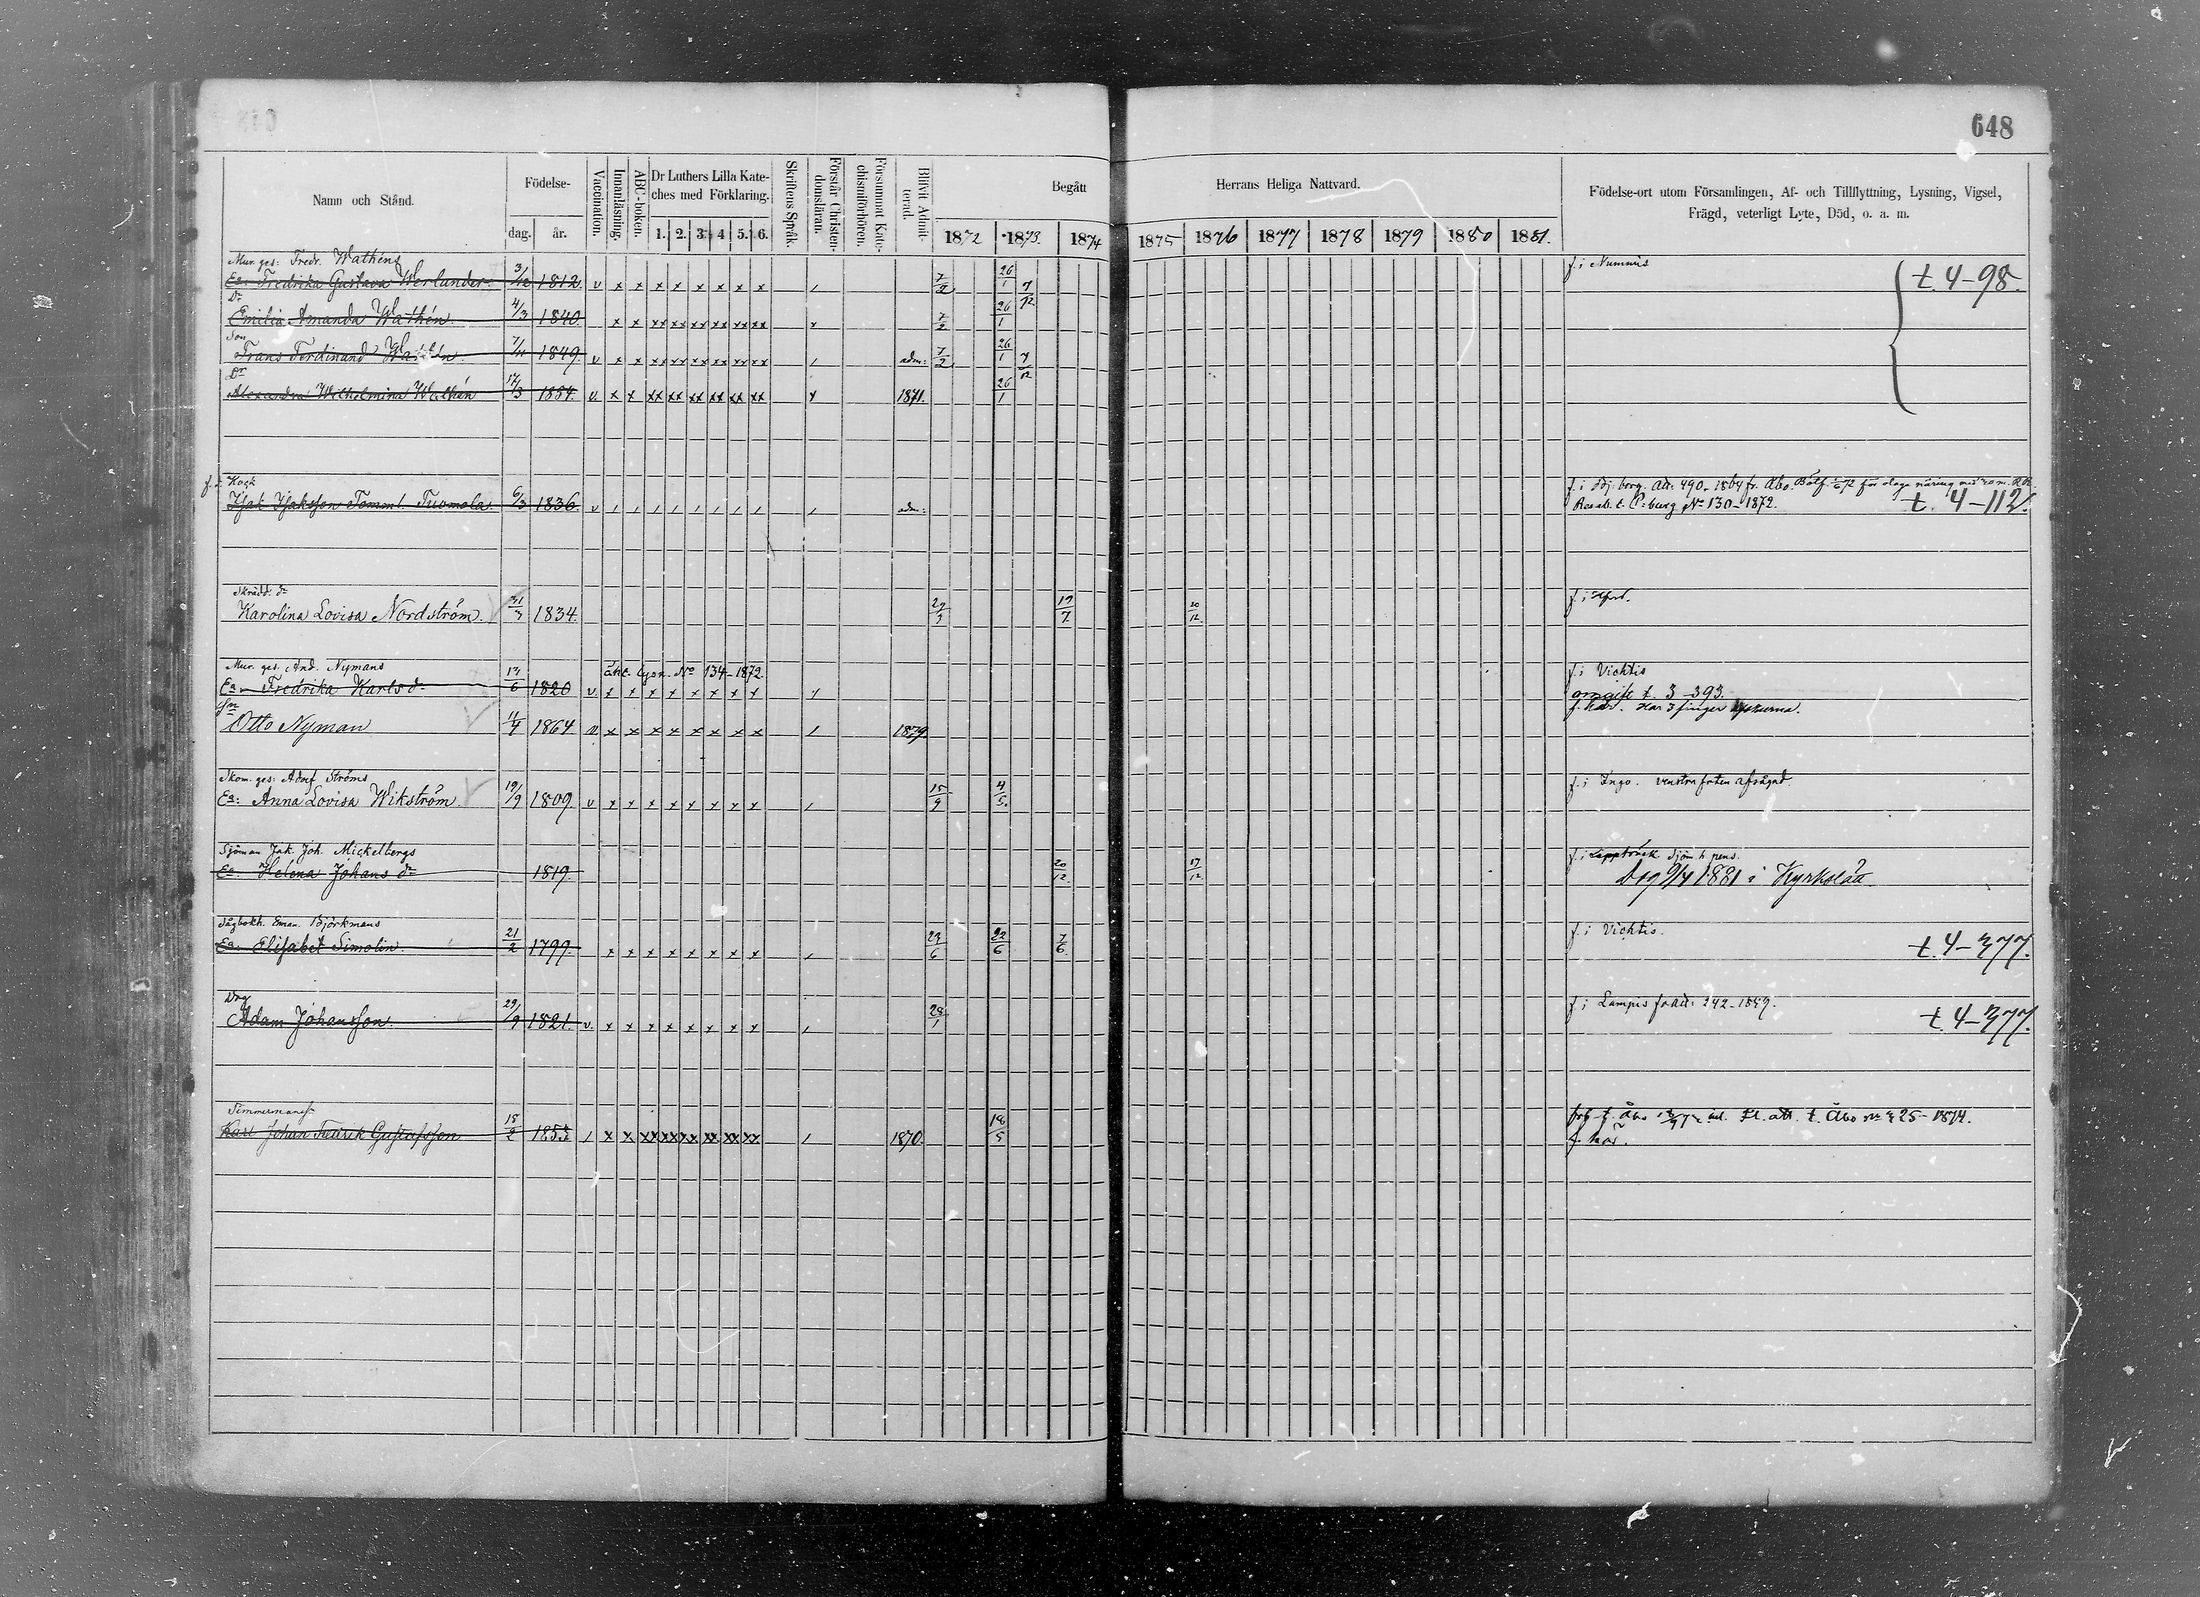 648
Namn och Stånd.
Födelse-
dag.
år.
Vaccination.
Innanläsning.
ABC-boken.
Dr Luthers Lilla Kate-
ches med Förklaring.
1. 2. 3. 4 5. 6.
Skriftens Språk.
Förstår Christen-
domsläran.
Försummat Kate-
chismiförhören.
Blifvit Admit-
terad.
Begått
Herrans Heliga Nattvard.
1872 1873 1874 1875 1876 1877 1878 1879 1880 1881.
Födelse-ort utom Församlingen, Af- och Tillflyttning, Lysning, Vigsel,
Frägd, veterligt Lyte, Död, o. a. m.
Mur. ges: Fredr. Wathéns
Ea: Fredrika Gustava Werlander 3/12 1812 v x x x x x x x x 7/2 26/1 7/12 f. i Nummis t. 4-98.
Dr
Emilia Amanda Wathén 4/3 1840. x x xx xx xx xx xx xx x 7/2 26/1
Son
Frans Ferdinand Wathén 7/11 1849. v x x xx xx xx xx xx xx adm: 7/2 26/1 7/12
Dr
Alexandra Wilhelmina Wathén 17/3 1854. v x x xx xx xx xx xx xx x 1871. 26/1
Kock
Isak Isaksson Tomml. Tuomola 6/3 1836 v adm:
t. P:burg No 130-1872. t. 4-112.
Skrädd. dr
Karolina Lovisa Nordström. 31/3 1834. 19/7 20/12
Mur. ges. And. Nymans
äkt. lysn. No 134-1872 f. i Vichtis
Ea Fredrika Karlsdr 1820 v x x x x x x x x omgift t. 3-393.
Sn
Otto Nyman 11/4 1864 v x x x x x x x x 1879. Har 3 finger
Skom. ges: Adolf Ströms
Ea: Anna Lovisa Wikström 19/9 1809. v x x x x x x x x 15/9 4/5. f. i Ingo. venstra foten afsågad.
Sjöman Jak. Joh. Mickelbergs
Ea. Helena Johans dr 1819. 20/12. 17/12 1881 i Kyrkslätt.
Eman. Björkmans
Ea: Elisabet Simolin. 21/2 1799. x x x x x x x x 22/6 7/6. f. i Vichtis. t. 4-377.
Drg
Adam Johansson. 29/9 1821. v. x x x x x x x x 28/1 f. i Lampis t. 4-377.
Timmermansf
Karl Johan Fredrik Gustafsson 15/2 x x xx xx xx xx xx xx 1870. 18/5